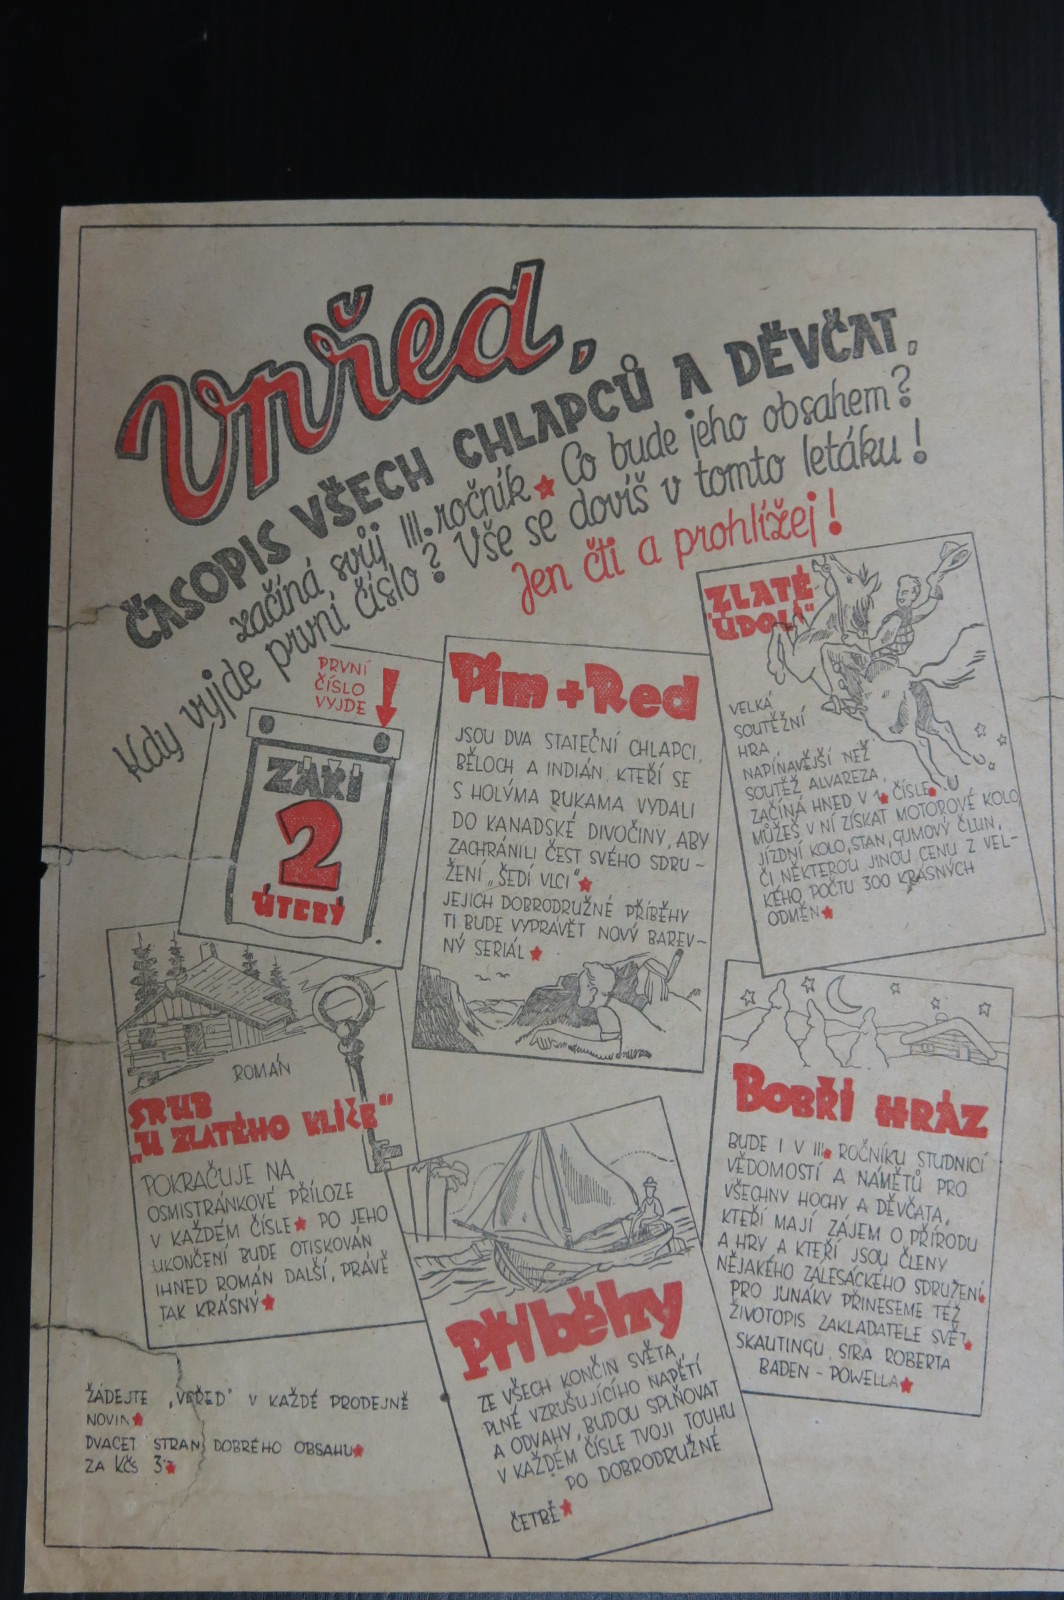 Vpřed,
ČASOPIS VŠECH CHLAPCŮ A DĚVČAT,
začíná svůj III. ročník ★ Co bude jeho obsahem?
Kdy vyjde první číslo? Vše se dovíš v tomto letáku!
Jen čti a prohlížej!
PRVNÍ
ČÍSLO
VYJDE
ZÁŘÍ
2
ÚTERÝ
Pim + Red
JSOU DVA STATEČNÍ CHLAPCI,
BĚLOCH A INDIÁN, KTEŘÍ SE
S HOLÝMA RUKAMA VYDALI
DO KANADSKÉ DIVOČINY, ABY
ZACHRÁNILI ČEST SVÉHO SDRU-
ŽENÍ „ŠEDÍ VLCI"★
JEJICH DOBRODRUŽNÉ PŘÍBĚHY
TI BUDE VYPRÁVĚT NOVÝ BAREV-
NÝ SERIÁL★
ZLATÉ
"ÚDOLÍ"
VELKÁ
SOUTĚŽNÍ
HRA
NAPÍNAVĚJŠÍ NEŽ
SOUTĚŽ ALVAREZA,
ZAČÍNÁ HNED V 1★ ČÍSLE★
MŮŽEŠ V NÍ ZÍSKAT MOTOROVÉ KOLO,
JÍZDNÍ KOLO, STAN, GUMOVÝ ČLUN,
ČI NĚKTEROU JINOU CENU Z VEL-
KÉHO POČTU 300 KRÁSNÝCH
ODMĚN★
ROMÁN
SRUB
„U ZLATÉHO KLÍČE"
POKRAČUJE NA
OSMISTRÁNKOVÉ PŘÍLOZE
V KAŽDÉM ČÍSLE★ PO JEHO
UKONČENÍ BUDE OTISKOVÁN
IHNED ROMÁN DALŠÍ, PRÁVĚ
TAK KRÁSNÝ★
Příběhy
ZE VŠECH KONČIN SVĚTA,
PLNÉ VZRUŠUJÍCÍHO NAPĚTÍ
A ODVAHY, BUDOU SPLŇOVAT
V KAŽDÉM ČÍSLE TVOJI TOUHU
PO DOBRODRUŽNÉ
ČETBĚ★
BOBŘÍ HRÁZ
BUDE I V III★ ROČNÍKU STUDNICÍ
VĚDOMOSTÍ A NÁMĚTŮ PRO
VŠECHNY HOCHY A DĚVČATA,
KTEŘÍ MAJÍ ZÁJEM O PŘÍRODU
A HRY A KTEŘÍ JSOU ČLENY
NĚJAKÉHO ZÁLESÁCKÉHO SDRUŽENÍ★
PRO JUNÁKY PŘINESEME TÉŽ
ŽIVOTOPIS ZAKLADATELE SVĚT★
SKAUTINGU, SIRA ROBERTA
BADEN - POWELLA★
ŽÁDEJTE „VPŘED" V KAŽDÉ PRODEJNĚ
NOVIN★
DVACET STRAN DOBRÉHO OBSAHU★
ZA KČS 3·-★